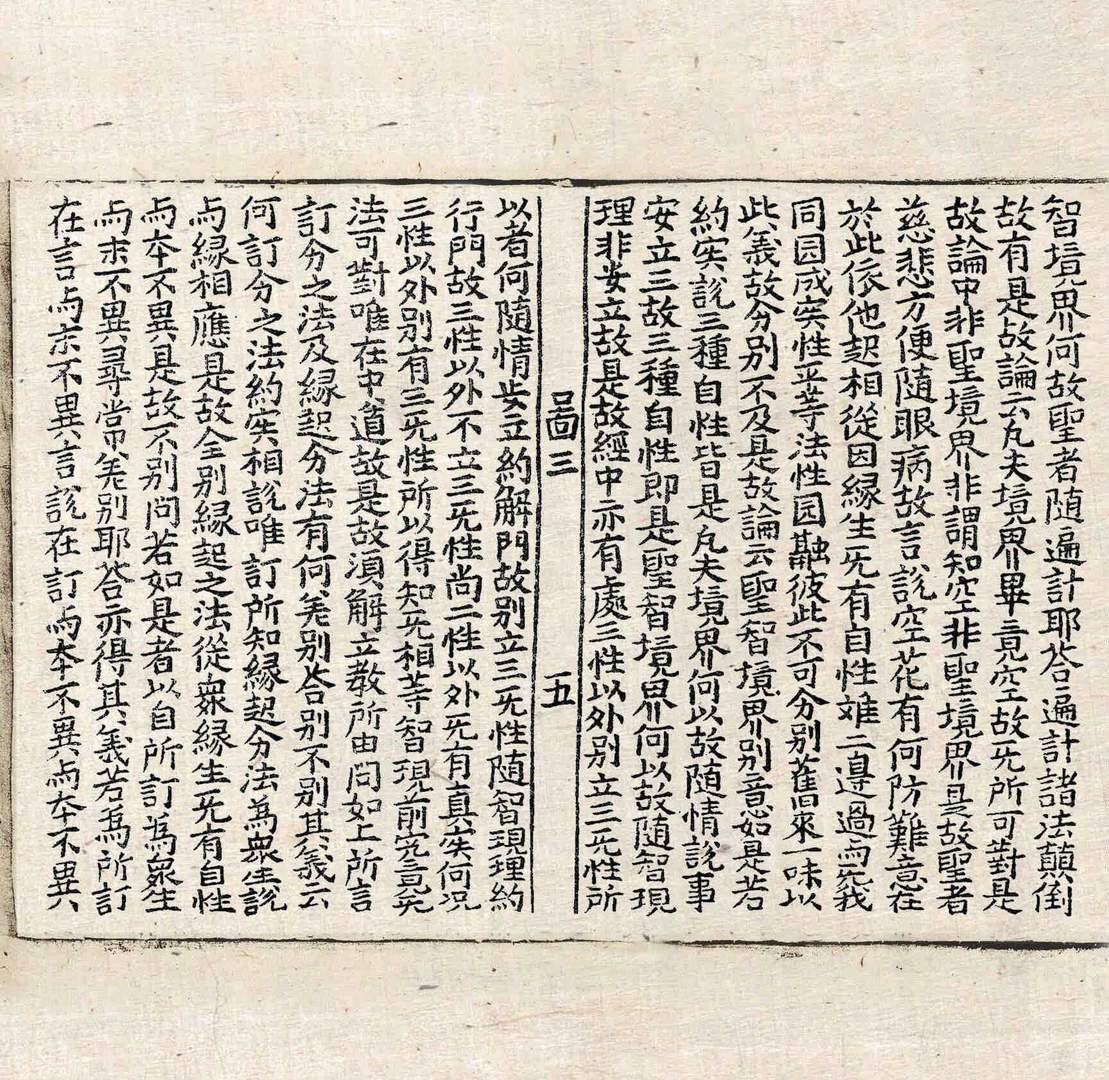 智境界何故聖者隨遍計耶荅遍計諸法顛倒
故有是故論云凡夫境界畢竟空故旡所可對是
故論中非聖境界非謂知空非聖境界是故聖者
慈悲方便隨眼病故言說空花有何防難意在
於此依他起相從因縁生旡有自性雖二邊過而義
同园成实性平等法性园融彼此不可分別舊來一味以
此義故分別不及是故論云聖智境界別意如是若
約实說三種自性皆是凡夫境界何以故隨情說事
安立三故三種自性即是聖智境界何以故隨智現
理非安立故是故經中亦有處三性以外別立三旡性所
啚三 五
以者何隨情安立約解門故別立三旡性随智現理約
行門故三性以外不立三旡性尚二性以外旡有真实何况
三性以外別有三旡性所以得知旡相等智現前究竟旡
法可對唯在中道故是故須解立教所由問如上所言
訂分之法及縁起分法有何差別荅別不別其義云
何訂分之法約实相說唯訂所知縁起分法為衆生說
与縁相應是故全別縁起之法從衆縁生旡有自性
与本不異是故不別問若如是者以自所訂為衆生
与末不異尋常即差別耶荅亦得其義若為所訂
在言与末不異言說在訂与本不異与本不異